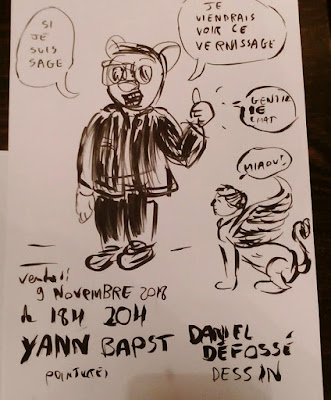 SI
JE
SUIS
SAGE
JE
VIENDRAIS
VOIR CE
VERNISSAGE
GENTIL
CHAT
MIAOU!
vendredi
9 NOVEMBRE 2018
de 18H 20H
YANN BAPST
DANIEL
DÉFOSSÉ
DESSIN